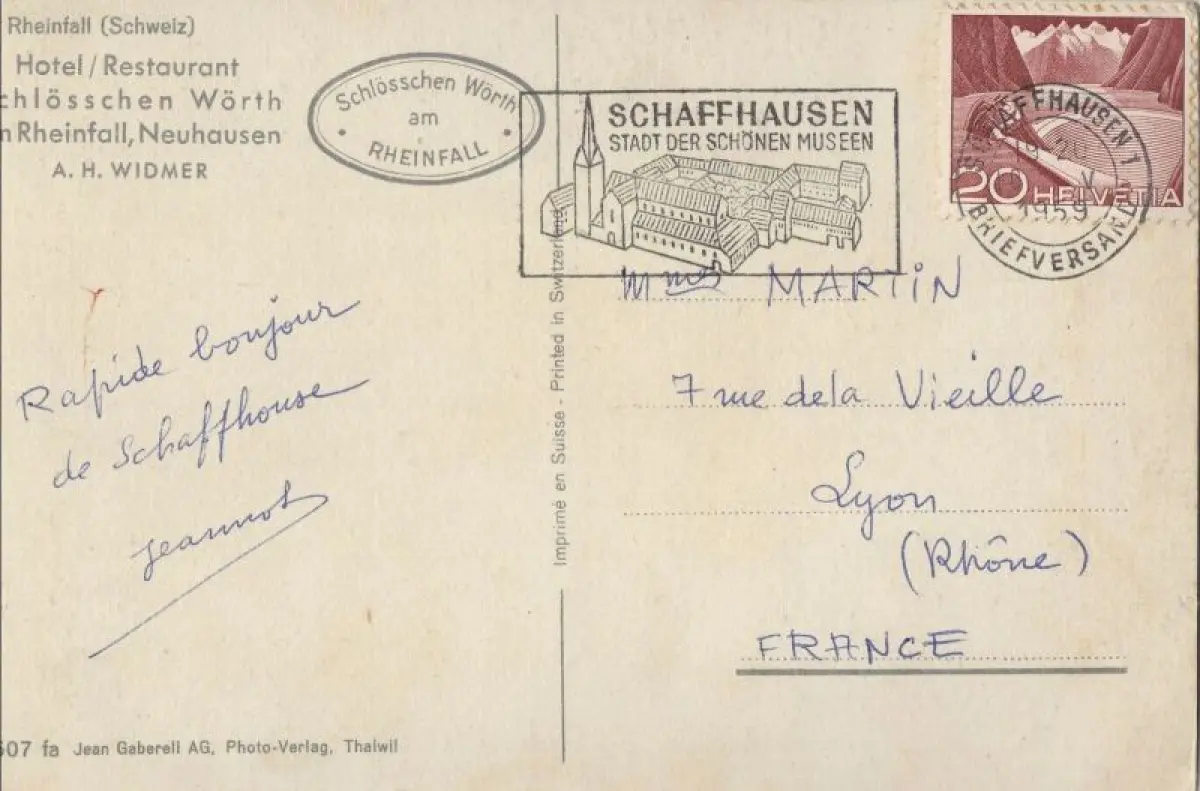 Rheinfall (Schweiz)
Hotel / Restaurant
chlösschen Wörth
n Rheinfall, Neuhausen
A. H. WIDMER
Schlösschen Wörth
am
RHEINFALL
SCHAFFHAUSEN
STADT DER SCHÖNEN MUSEEN
20 HELVETIA
SCHAFFHAUSEN 1
1959
BRIEFVERSAND
Rapide bonjour
de Schaffhouse
Jeannot
Imprimé en Suisse - Printed in Switzerland
Mmes MARTIN
7 rue de la Vieille
Lyon
(Rhône)
FRANCE
607 fa Jean Gaberell AG, Photo-Verlag, Thalwil